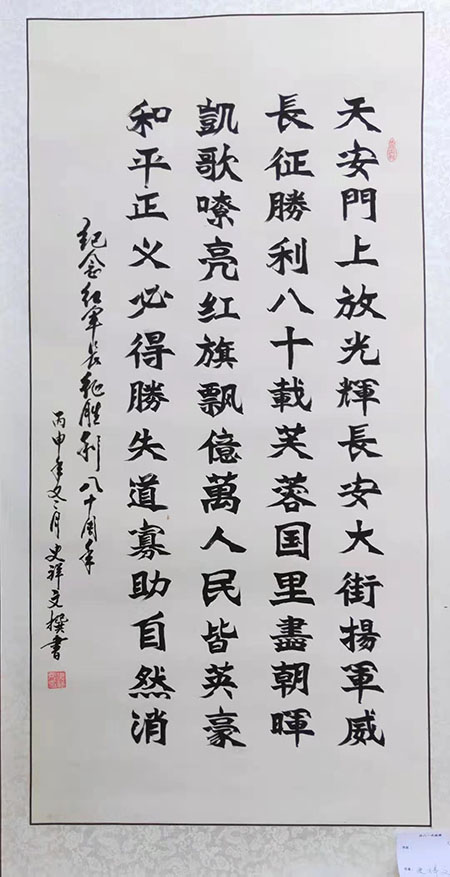 天安門上放光輝長安大街揚軍威
長征勝利八十載芙蓉国里盡朝暉
凱歌嘹亮红旗飘億萬人民皆英豪
和平正义必得勝失道寡助自然消
纪念红军长征胜利八十周年
丙申年冬月史祥文撰書